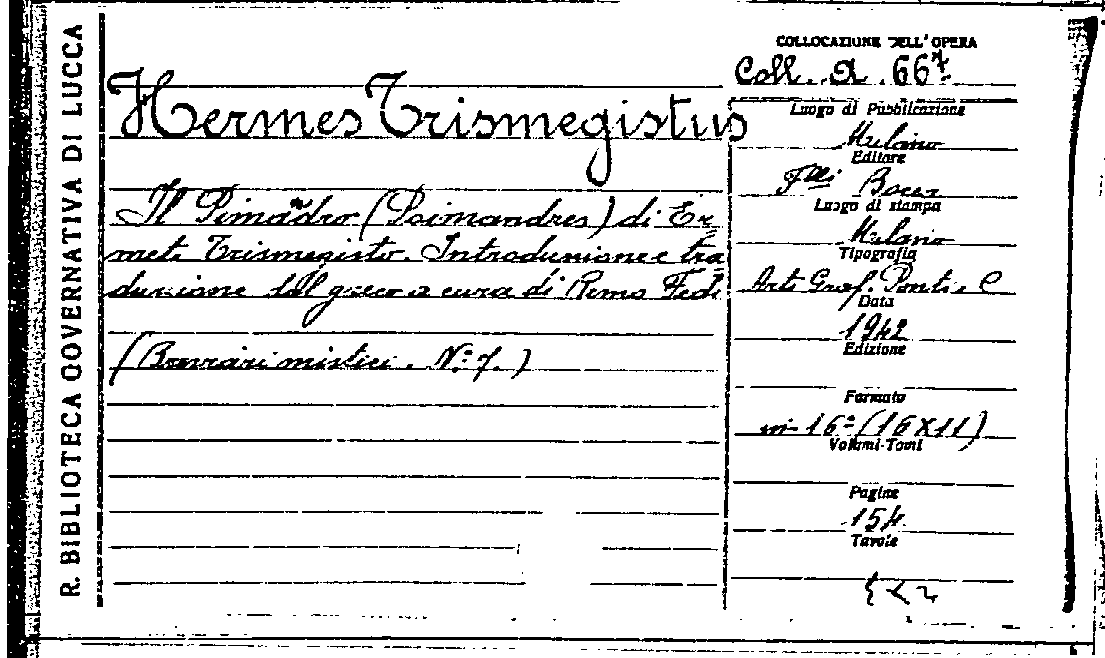 R. BIBLIOTECA GOVERNATIVA DI LUCCA
Hermes Trismegistus
Il Pimandro (Poimandres) di Er
mete Trismegisto. Introduzione e tra
duzione dal greco a cura di Remo Fedi
(Breviari mistici. N.º 7.)
COLLOCAZIONE DELL'OPERA
Coll. A. 667
Luogo di Pubblicazione
Milano
Editore
F.lli Bocca
Luogo di stampa
Milano
Tipografia
Arti Graf. Ponti e C
Data
1942
Edizione
Formato
in-16º (16X11)
Volumi-Tomi
Pagine
154
Tavole